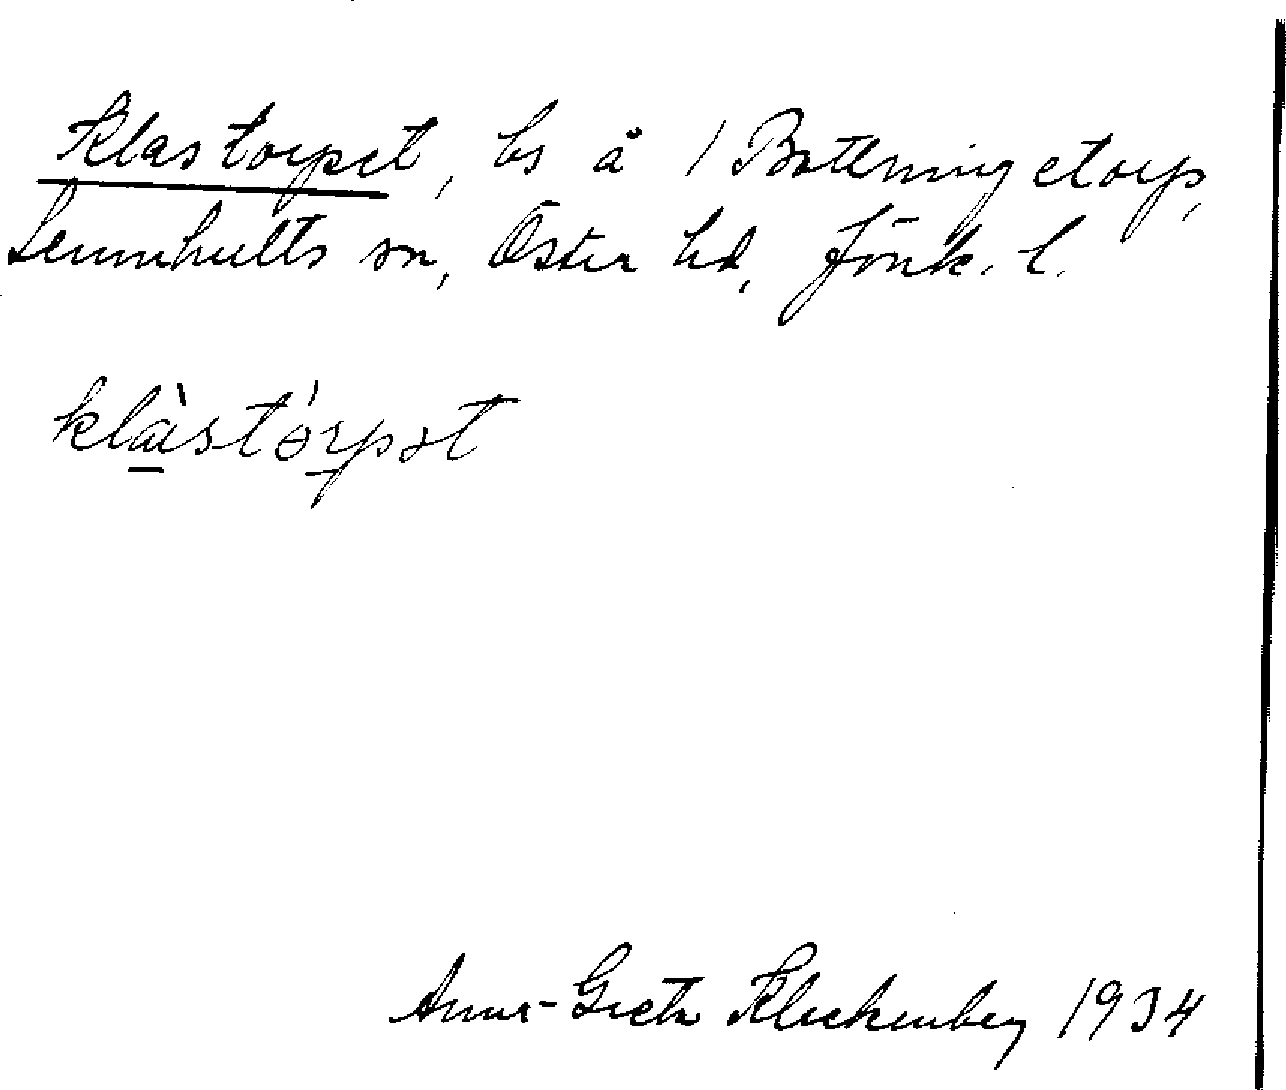 Klastorpet, bs å 1 Bottningetorp,
Lemnhults sn, Öster hd, Jönk. l.
klàstórpət
Anna-Greta Kleckenberg 1934